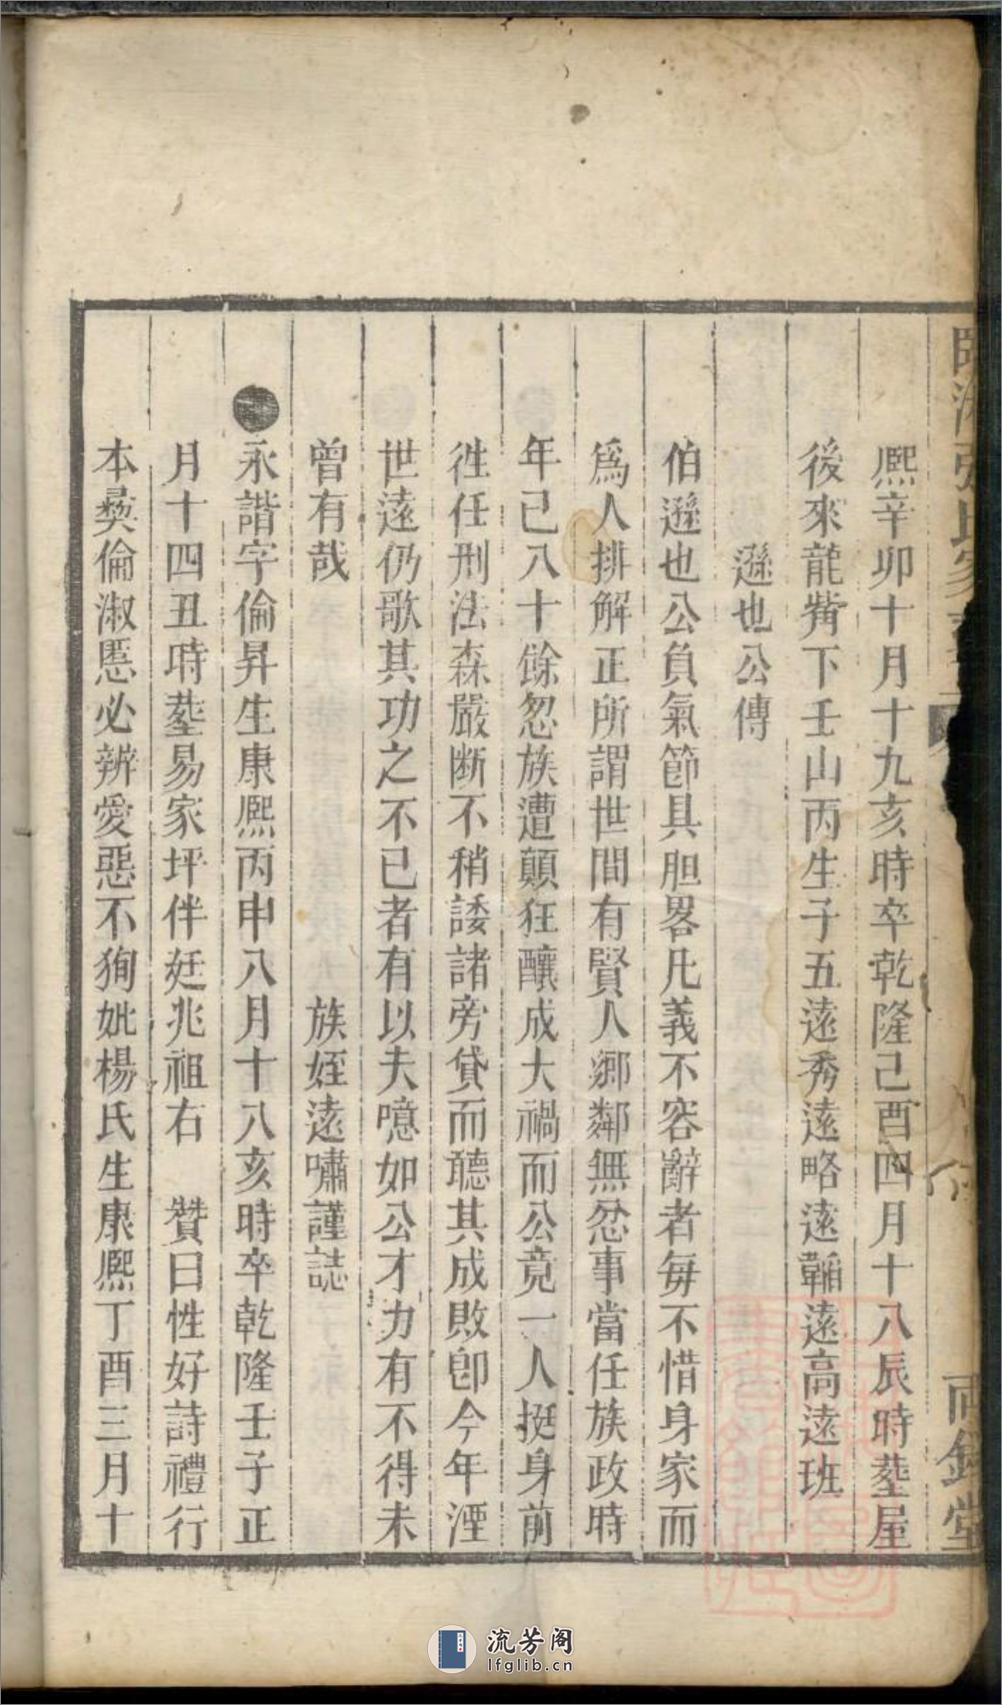 張氏家
兩銘堂
熙辛卯十月十九亥時卒乾隆己酉四月十八辰時塟屋
後來龍觜下壬山丙生子五遠秀遠略遠鞴遠高遠班
遜也公傳
伯遜也公負氣節具胆畧凡義不容辭者每不惜身家而
爲人排解正所謂世間有賢人鄉鄰無忿事當任族政時
年已八十餘忽族遭顛狂釀成大禍而公竟一人挺身前
徃任刑法森嚴断不稍諉諸旁貸而聽其成敗卽今年湮
世遠仍歌其功之不已者有以夫噫如公才力有不得未
曾有哉 族姪遠嘯謹誌
永諧字倫昇生康熙丙申八月十八亥時卒乾隆壬子正
月十四丑時塟易家坪伴廷兆祖右 贊曰性好詩禮行
本彜倫淑慝必辨愛惡不狥妣楊氏生康熙丁酉三月十
流芳阁
lfglib.cn